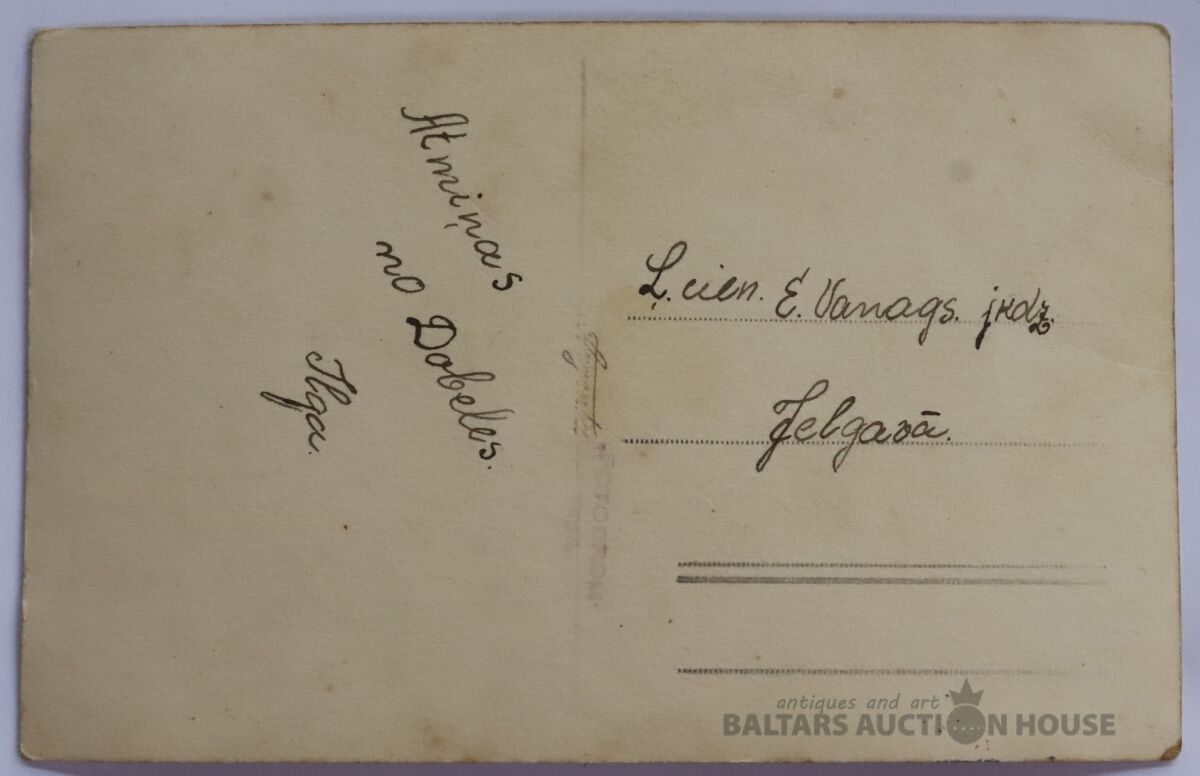 Atmiņas
no Dobeles.
Ilga.
Ļ. cien. E. Vanags. jkdz.
Jelgavā.
antiques and art
BALTARS AUCTION HOUSE